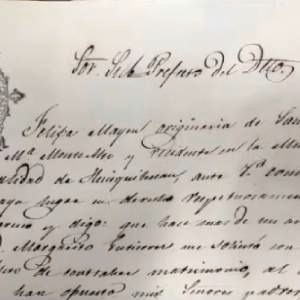 Sor. Sub Prefecto del Dtto.
Felipa Mayen originaria de San
Ma. Monte Alto y residente en la Mu
alidad de Huiquilucan, ante V. com
aya lugar en derecho respetuosamen
y digo: que hace mas de un a
Margarito Gutierrez me solicitó con
de contraher matrimonio, al
han opuesto mis Señores padres